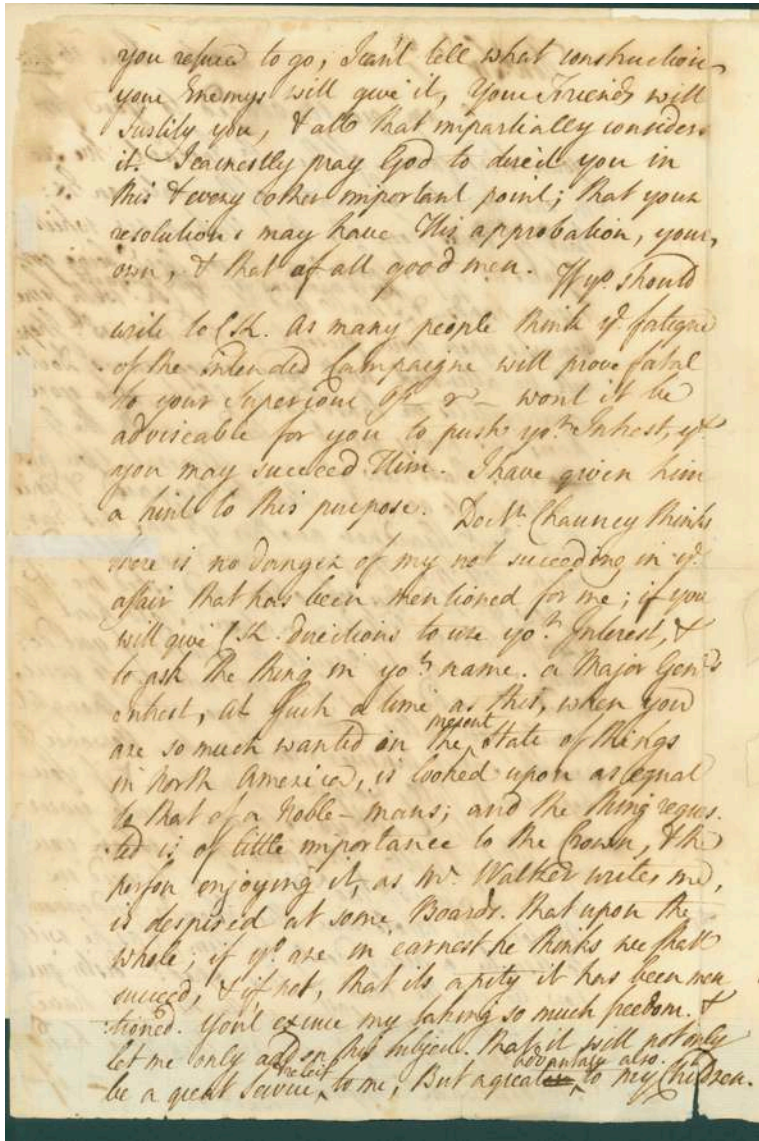 you refuse to go, I can't tell what construction
your Enemys will give it, Your Friends will
Justify you, & all that impartially consider
it. I earnestly pray God to direct you in
this & every other important point; that your
resolutions may have His approbation, your
own, & that of all good men. If yo. should
write to C Sk. As many people think ye. fatigue
of the intended Campaigne will prove fatal
to your Superiour Of--r-- wont it be
adviseable for you to push yor. Intrest, yt.
you may succeed Him. I have given him
a hint to this purpose. Doctr. Chauncy thinks
there is no danger of my not succeeding in ye.
affair that has been mentioned for me; if you
will give C Sk. directions to use yor. Interest, &
to ask the thing in yor. name. a Major Genls
intrest, at such a time as this, when you
are so much wanted in the present State of things
in North America, is looked upon as equal
to that of a Noble-mans; and the thing reques-
ted is of little importance to the Crown, & the
person enjoying it, as Mr. Walker writes me,
is despised at some Boards. that upon the
whole, if yo. are in earnest he thinks we shall
succeed, & if not, that its a pity it has been men
tioned. You'l excuse my taking so much freedom. &
let me only add on this subject. that it will not only
be a great relief to me, But a great advantage also. to my Children.